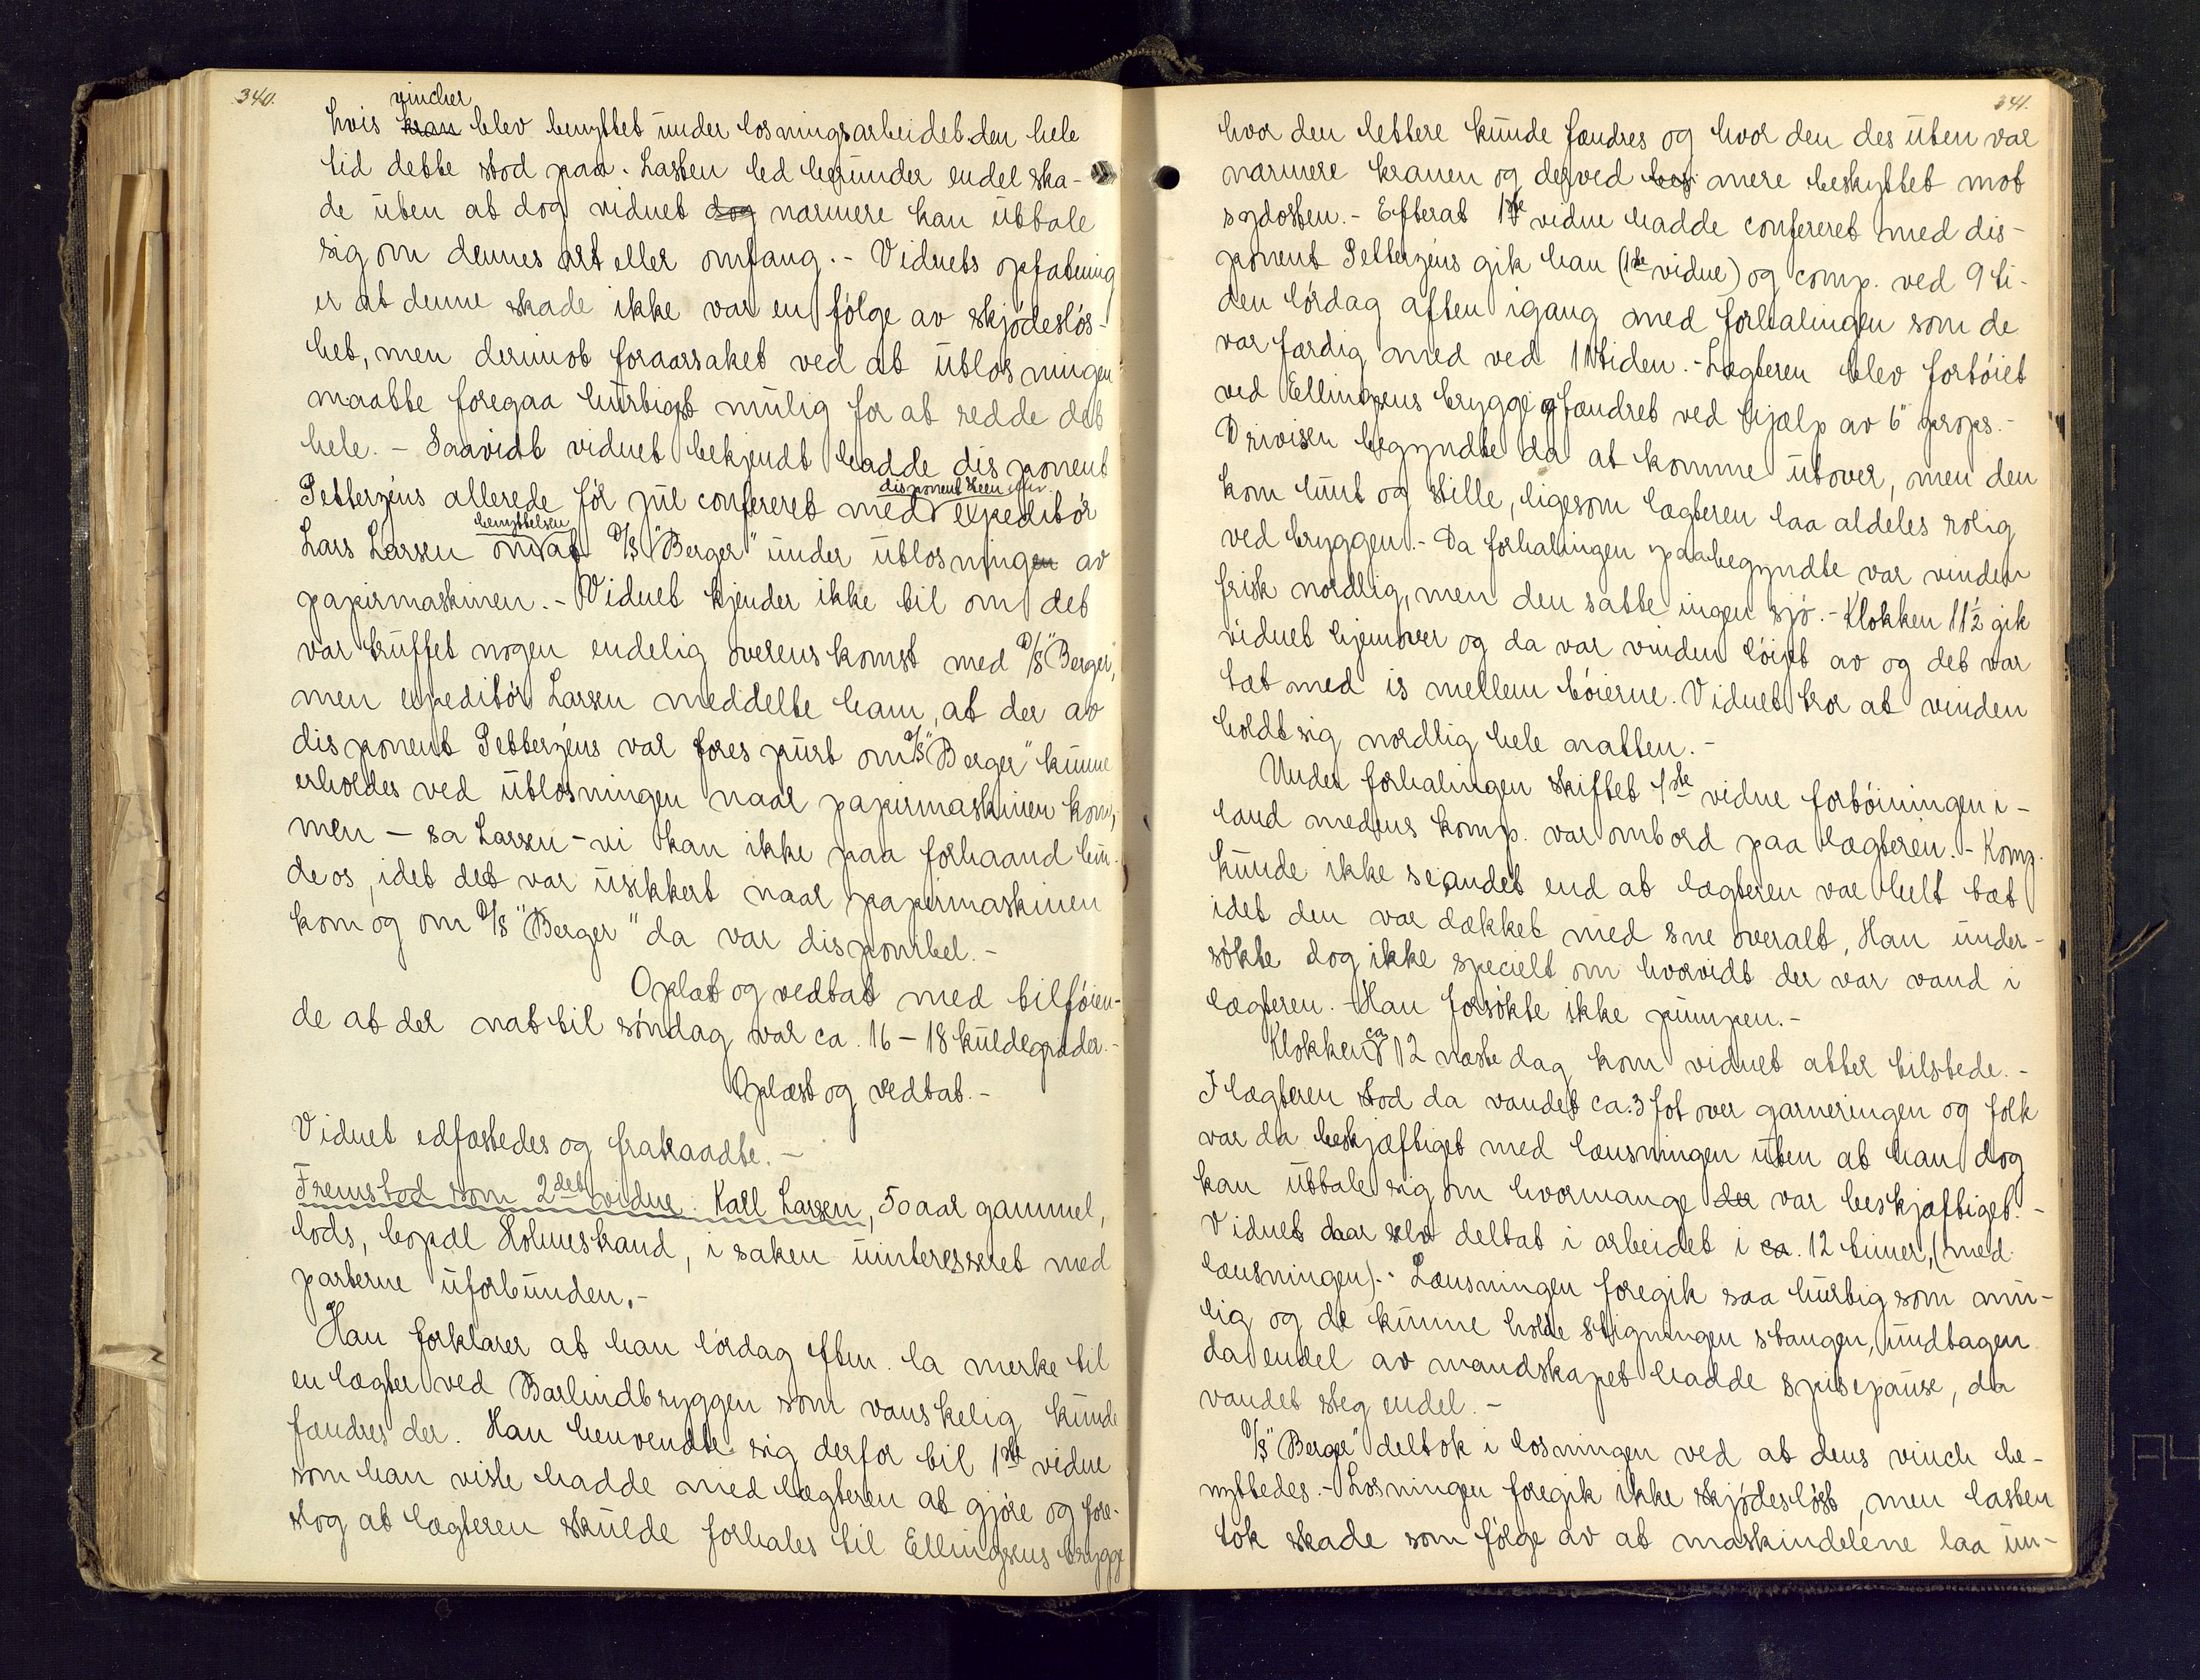 340.
vincher
hvis kran blev benyttet under losningsarbeidet den hele
tid dette stod paa. Lasten led herunder endel ska-
de uten at dog vidnet dog nærmere kan uttale
sig om dennes art eller omfang. - Vidnets opfatning
er at denne skade ikke var en følge av skjødesløs-
het, men derimot foraarsaket ved at utlosningen
maatte foregaa hurtigst mulig for at redde det
hele. - Saavidt vidnet bekjendt hadde disponent
disponent Steen eller
Petterzéns allerede før jul confereret med expeditør
benyttelsen
Lars Larsen om at D/S "Berger" under utlosningen av
papirmaskinen. - Vidnet kjender ikke til om det
var truffet nogen endelig overenskomst med D/S "Berger",
men expeditør Larsen meddelte ham, at der av
disponent Petterzéns var forespurt om D/S "Berger" kunne
erholdes ved utlosningen naar papirmaskinen kom,
men - sa Larsen - vi kan ikke paa forhaand bin-
de os, idet det var usikkert naar papirmaskinen
kom og om D/S "Berger" da var disponibel. -
Oplæst og vedtat med tilføien-
de at der nat til søndag var ca. 16 - 18 kuldegrader. -
Oplæst og vedtat. -
Vidnet edfæstedes og fratraadte. -
Fremstod som 2det vidne: Karl Larsen, 50 aar gammel,
lods, bopæl Holmestrand, i saken uinteresseret med
parterne uforbunden. -
Han forklarer at han lørdag eftm. la merke til
en lægter ved Barlindbryggen som vanskelig kunde
fændres der. Han henvendte sig derfor til 1ste vidne
som han viste hadde med lægteren at gjøre og fore-
slog at lægteren skulde forhales til Ellingsens brygge
341.
hvor den lettere kunde fændres og hvor den des uten var
nærmere kranen og derved bes mere beskyttet mot
sydosten. - Efterat 1ste vidne hadde confereret med dis-
ponent Petterzéns gik han (1ste vidne) og comp. ved 9 ti-
den lørdag aften igang med forhalingen som de
var færdig med ved 11 tiden. - Lægteren blev fortøiet
ved Ellingsens brygge og fændret ved hjælp av 6" props. -
Drivisen begyndte da at komme utover, men den
kom lunt og stille, ligesom lægteren laa aldeles rolig
ved bryggen. - Da forhalingen paabegyndte var vinden
frisk nordlig, men den satte ingen sjø. - Klokken 11½ gik
vidnet hjemover og da var vinden løiet av og det var
tæt med is mellem bøierne. Vidnet tror at vinden
holdt sig nordlig hele natten. -
Under forhalingen skiftet 1ste vidne fortøiningen i-
land medens komp. var ombord paa lægteren. - Komp.
kunde ikke se andet end at lægteren var helt tæt
idet den var dækket med sne overalt, Han under-
søkte dog ikke specielt om hvorvidt der var vand i
lægteren. - Han forsøkte ikke pumpen. -
ca
Klokken 12 næste dag kom vidnet atter tilstede. -
I lægteren stod da vandet ca. 3 fot over garneringen og folk
var da beskjæftiget med lænsningen uten at han dog
kan uttale sig om hvormange der var beskjæftiget. -
Vidnet har selv deltat i arbeidet i ca. 12 timer, (med
lænsningen). - Lænsningen foregik saa hurtig som mu-
lig og de kunne holde stigningen stangen, undtagen
da endel av mandskapet hadde spisepause, da
vandet steg endel. -
D/S "Berger" deltok i losningen ved at dens vinch be-
nyttedes. - Losningen foregik ikke skjødesløst, men lasten
tok skade som følge av at maskindelene laa un-